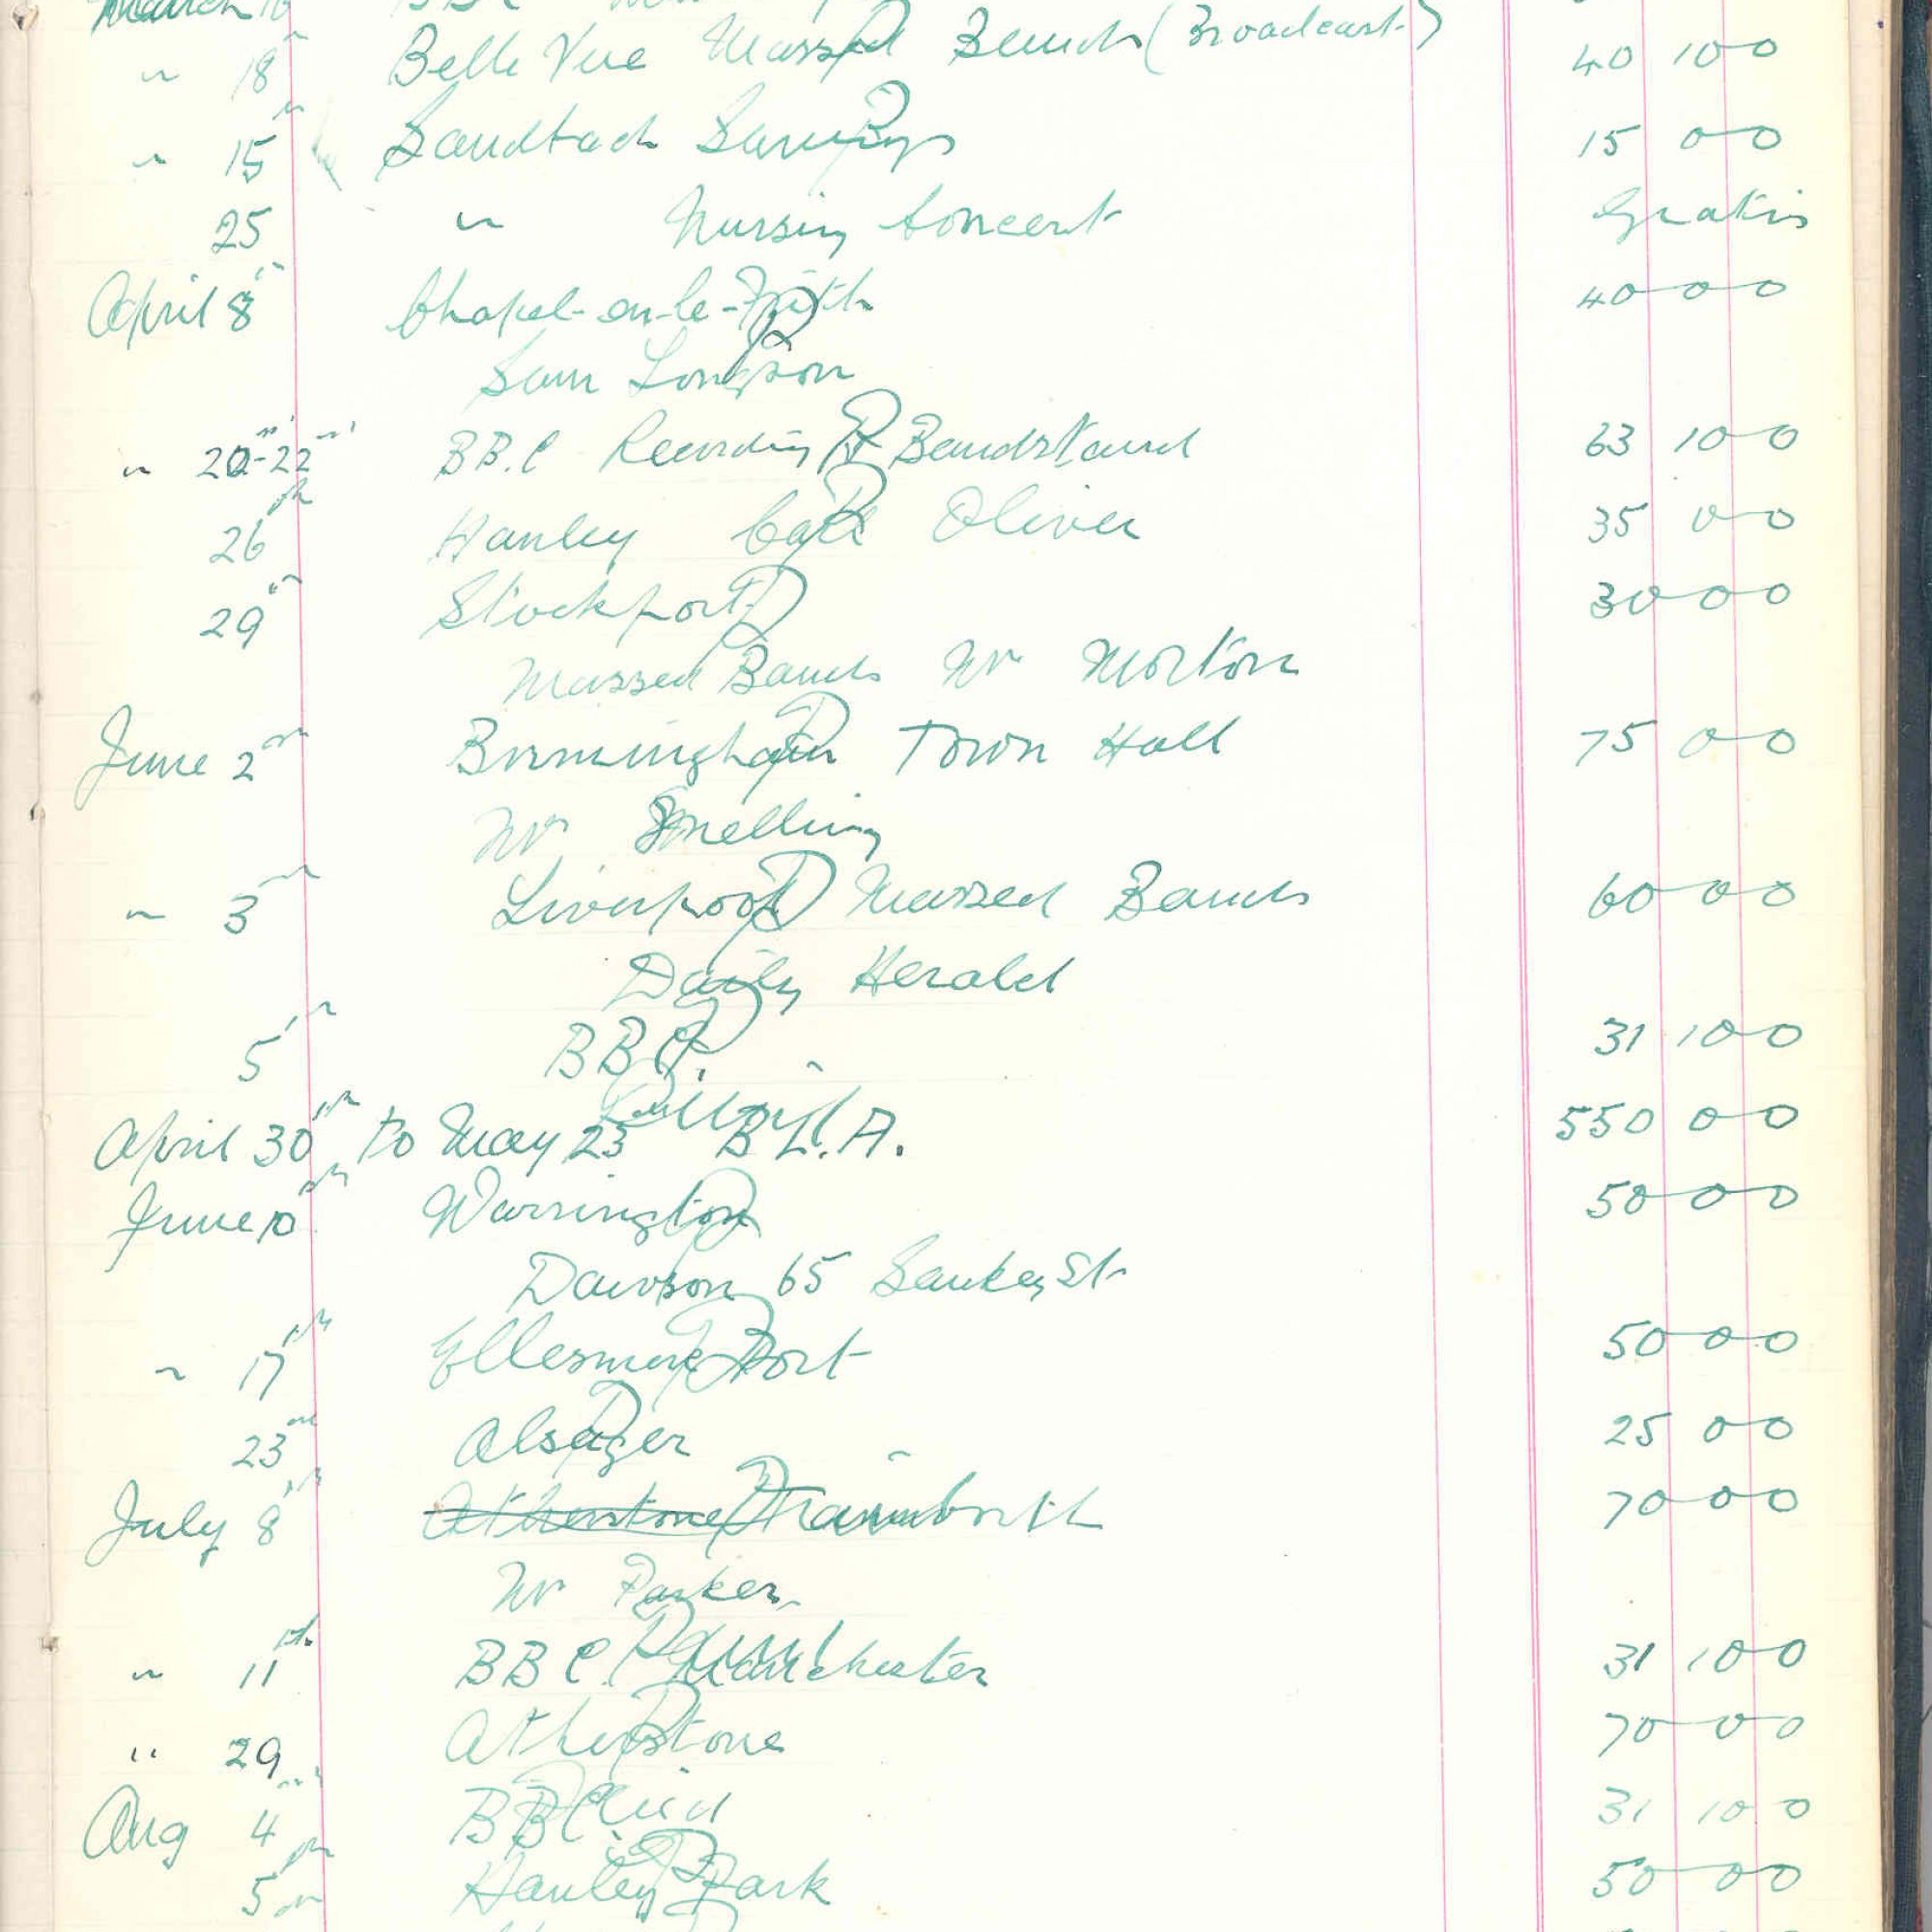 March
" 18th Belle Vue Massed Bands (Broadcast) 40 10 0
" 15th Sandbach Savings 15 0 0
25 " Nursing Concert Gratis
April 8th Chapel-en-le-Frith 40 0 0
Sam Longson
" 20th-22nd BB.C Recording Bandstand 63 10 0
26th Hanley Oliver 35 0 0
29th Stockport 30 0 0
Massed Bands Mr Morton
June 2nd Birmingham Town Hall 75 0 0
Mr Snelling
" 3rd Liverpool Massed Bands 60 0 0
Daily Herald
5th BBC. 31 10 0
April 30th to May 23 B.L.A. 550 0 0
June 10th Warrington 50 0 0
Dawson 65 Sankey St
" 17th Ellesmere Port 50 0 0
23rd Alsager 25 0 0
July 8th Atherstone 70 0 0
Mr Parker
" 11th BBC. Paid Manchester 31 10 0
" 29 Atherstone 70 0 0
Aug 4th BBC Paid 31 10 0
5th Hanley Park 50 0 0